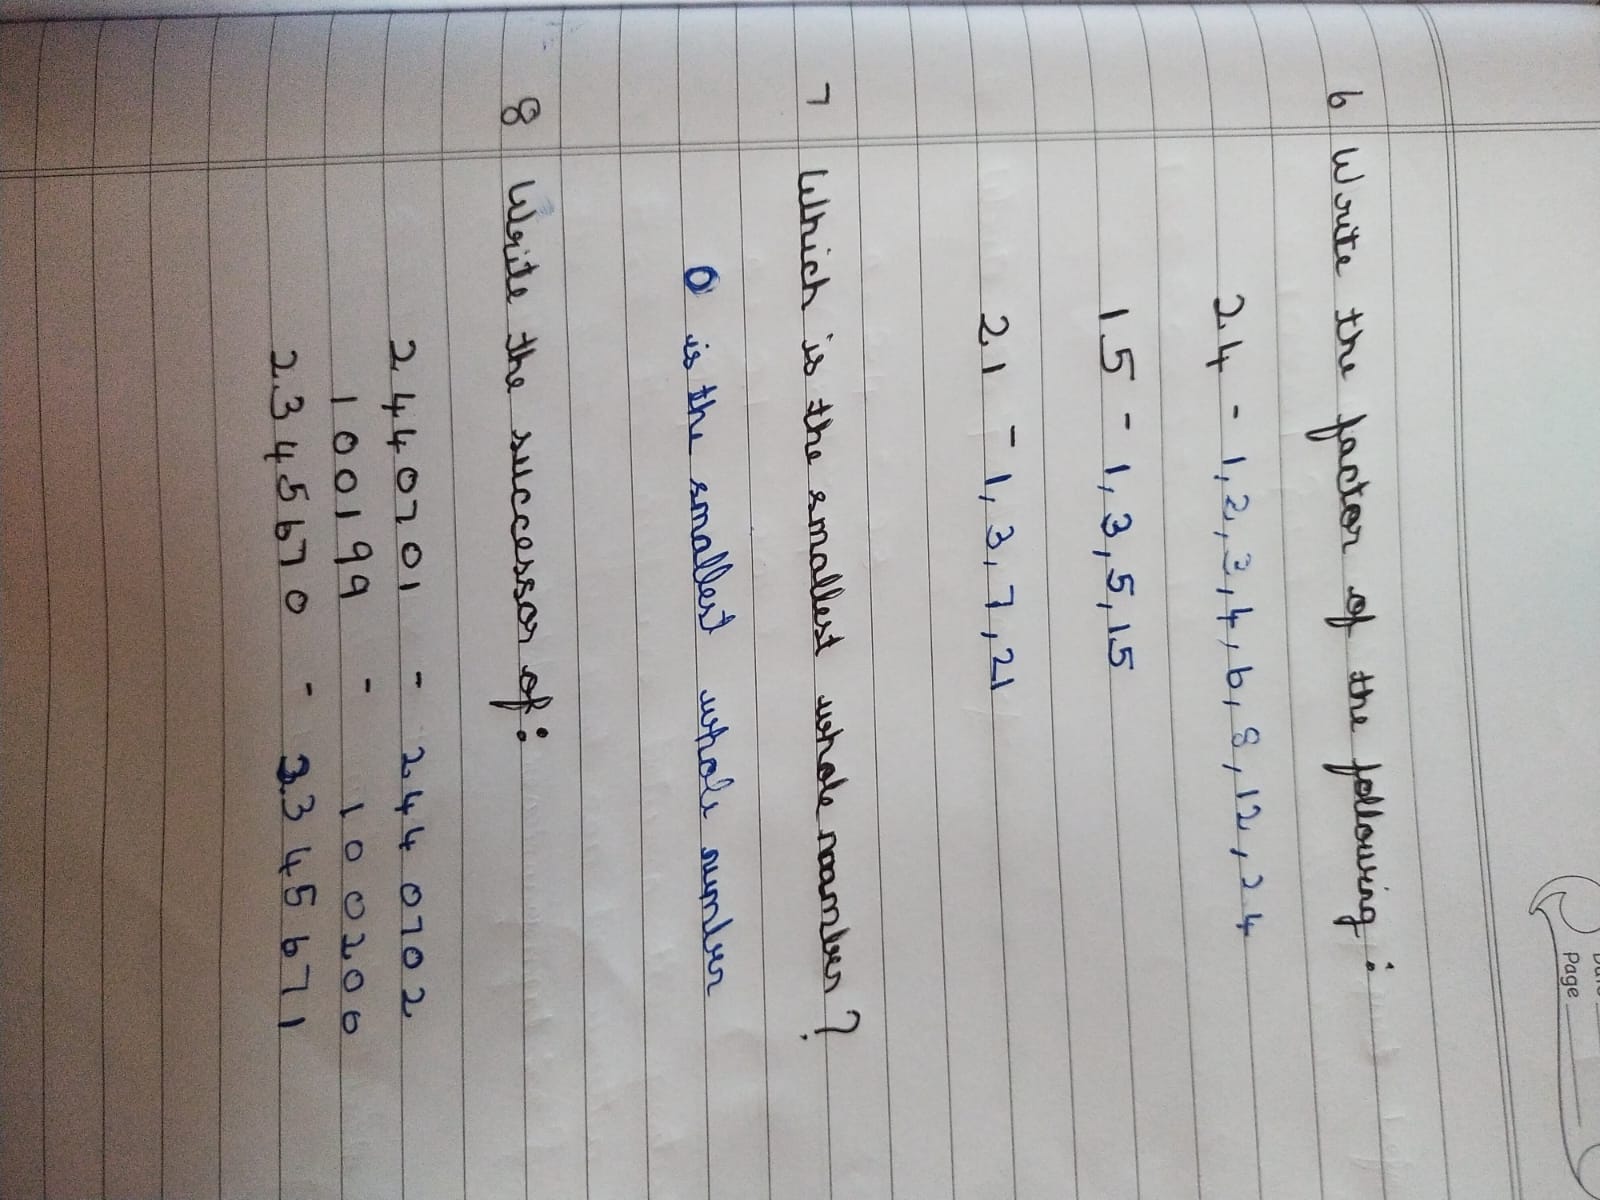 Page
6 Write the factor of the following :
24 - 1, 2, 3, 4, 6, 8, 12, 24
15 - 1, 3, 5, 15
21 - 1, 3, 7, 21
7 Which is the smallest whole number ?
0 is the smallest whole number
8 Write the successor of :
2440701 - 2440702
100199 - 100200
2345670 - 3345671